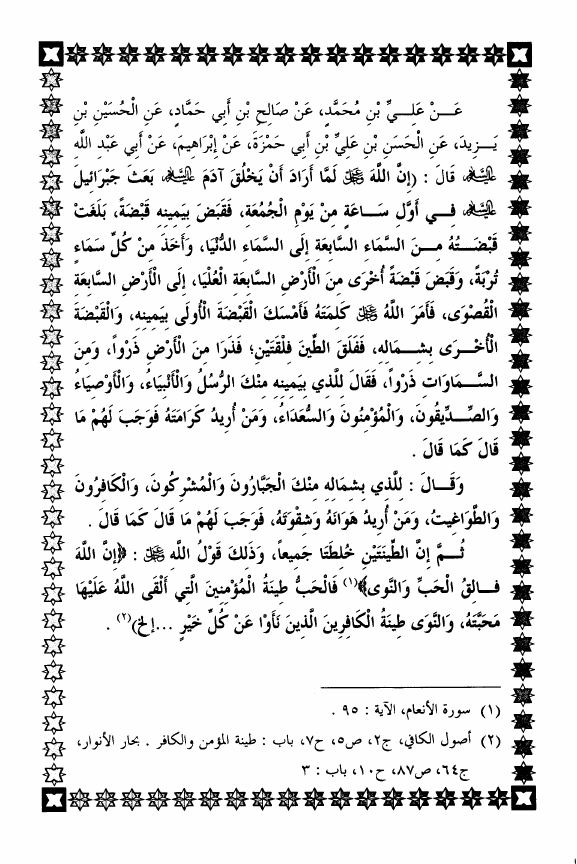 عَـنْ عَلِـيِّ بْنِ مُحَمَّدٍ، عَنْ صَالِحِ بْنِ أَبِي حَمَّادٍ، عَنِ الْحُسَيْنِ بْنِ
يَـزِيدَ، عَنِ الْحَسَنِ بْنِ عَلِيِّ بْنِ أَبِي حَمْزَةَ، عَنْ إِبْرَاهِيمَ، عَنْ أَبِي عَبْدِ اللَّهِ
قَالَ : (إِنَّ اللَّهَ لَمَّا أَرَادَ أَنْ يَخْلُقَ آدَمَ بَعَثَ جَبْرَائِيلَ
فِـي أَوَّلِ سَـاعَةٍ مِنْ يَوْمِ الْجُمُعَةِ، فَقَبَضَ بِيَمِينِهِ قَبْضَةً، بَلَغَتْ
قَبْضَـتُهُ مِـنَ السَّمَاءِ السَّابِعَةِ إِلَى السَّمَاءِ الدُّنْيَا، وَأَخَذَ مِنْ كُلِّ سَمَاءٍ
تُرْبَةً، وَقَبَضَ قَبْضَةً أُخْرَى مِنَ الْأَرْضِ السَّابِعَةِ الْعُلْيَا، إِلَى الْأَرْضِ السَّابِعَةِ
الْقُصْوَى، فَأَمَرَ اللَّهُ كَلِمَتَهُ فَأَمْسَكَ الْقَبْضَةَ الْأُولَى بِيَمِينِهِ، وَالْقَبْضَةَ
الْأُخْـرَى بِشِـمَالِهِ، فَفَلَقَ الطِّينَ فِلْقَتَيْنِ؛ فَذَرَا مِنَ الْأَرْضِ ذَرْواً، وَمِنَ
السَّـمَاوَاتِ ذَرْواً، فَقَالَ لِلَّذِي بِيَمِينِهِ مِنْكَ الرُّسُلُ وَالْأَنْبِيَاءُ، وَالْأَوْصِيَاءُ
وَالصِّـدِّيقُونَ، وَالْمُؤْمِنُونَ وَالسُّعَدَاءُ، وَمَنْ أُرِيدُ كَرَامَتَهُ فَوَجَبَ لَهُمْ مَا
قَالَ كَمَا قَالَ .
وَقَـالَ : لِلَّذِي بِشِمَالِهِ مِنْكَ الْجَبَّارُونَ وَالْمُشْرِكُونَ، وَالْكَافِرُونَ
وَالطَّوَاغِيتُ، وَمَنْ أُرِيدُ هَوَانَهُ وَشِقْوَتَهُ، فَوَجَبَ لَهُمْ مَا قَالَ كَمَا قَالَ .
ثُـمَّ إِنَّ الطِّينَتَيْنِ خُلِطَتَا جَمِيعاً، وَذَلِكَ قَوْلُ اللَّهِ : ﴿إِنَّ اللَّهَ
فَـالِقُ الْحَبِّ وَالنَّوى﴾(١) فَالْحَبُّ طِينَةُ الْمُؤْمِنِينَ الَّتِي أَلْقَى اللَّهُ عَلَيْهَا
مَحَبَّتَهُ، وَالنَّوَى طِينَةُ الْكَافِرِينَ الَّذِينَ نَأَوْا عَنْ كُلِّ خَيْرٍ ...إلخ)(٢) .
(١) سورة الأنعام، الآية : ٩٥ .
(٢) أصول الكافي، ج٢، ص٥، ح٧، باب : طينة المؤمن والكافر . بحار الأنوار،
ج٦٤، ص٨٧، ح١٠، باب : ٣